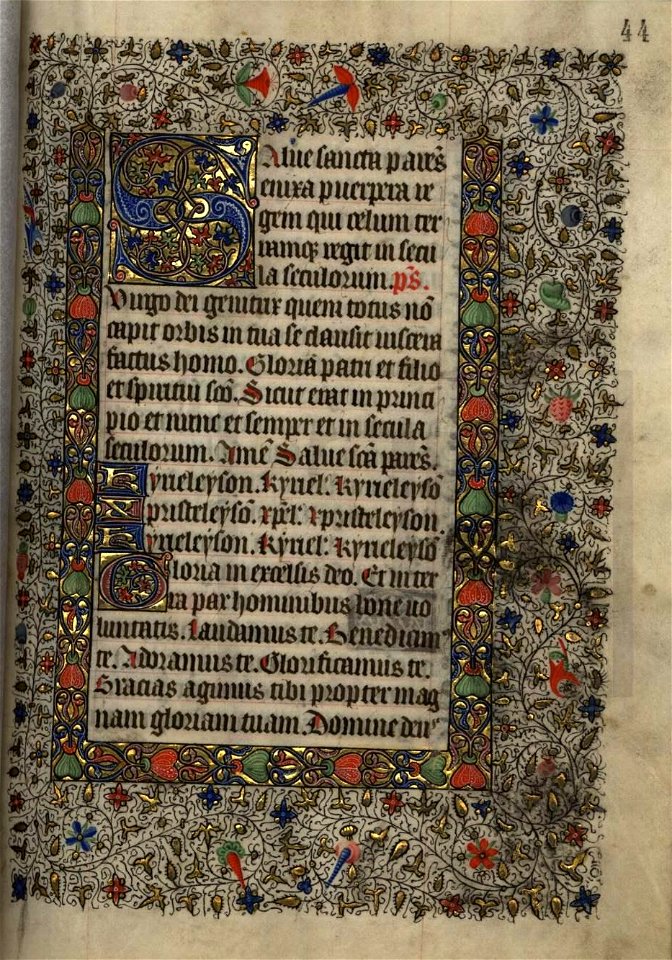 44
Salue sancta parēs
enixa puerpera re
gem qui celum ter
ramq; regit in secu
la seculorum. ps̄.
Virgo dei genitrix quem totus nō
capit orbis in tua se clausit viscera
factus homo. Gloria patri et filio
et spiritui scō. Sicut erat in princi
pio et nunc et semper et in secula
seculorum. Amē Salue scā parēs.
Kyrieleyson. Kyriel̄. Kyrieleysō
Xpristeleysō. xp̄l. xpristeleyson.
Kyrieleyson. Kyriel̄. Kyrieleysō
Gloria in excelsis deo. Et in ter
ra pax hominibus bone uo
luntatis. Laudamus te. Benedicim⁹
te. Adoramus te. Glorificamus te.
Gracias agimus tibi propter mag
nam gloriam tuam. Domine deu⁹